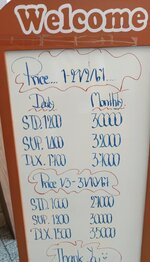 Welcome
Price...
Daily Monthly
STD. 1200 30000
SUP. 1400 32000
DLX. 1700 37000
Price 1/3 - 31/10/61
STD. 1000 27000
SUP. 1200 30000
DLX. 1500 35000
Thank You